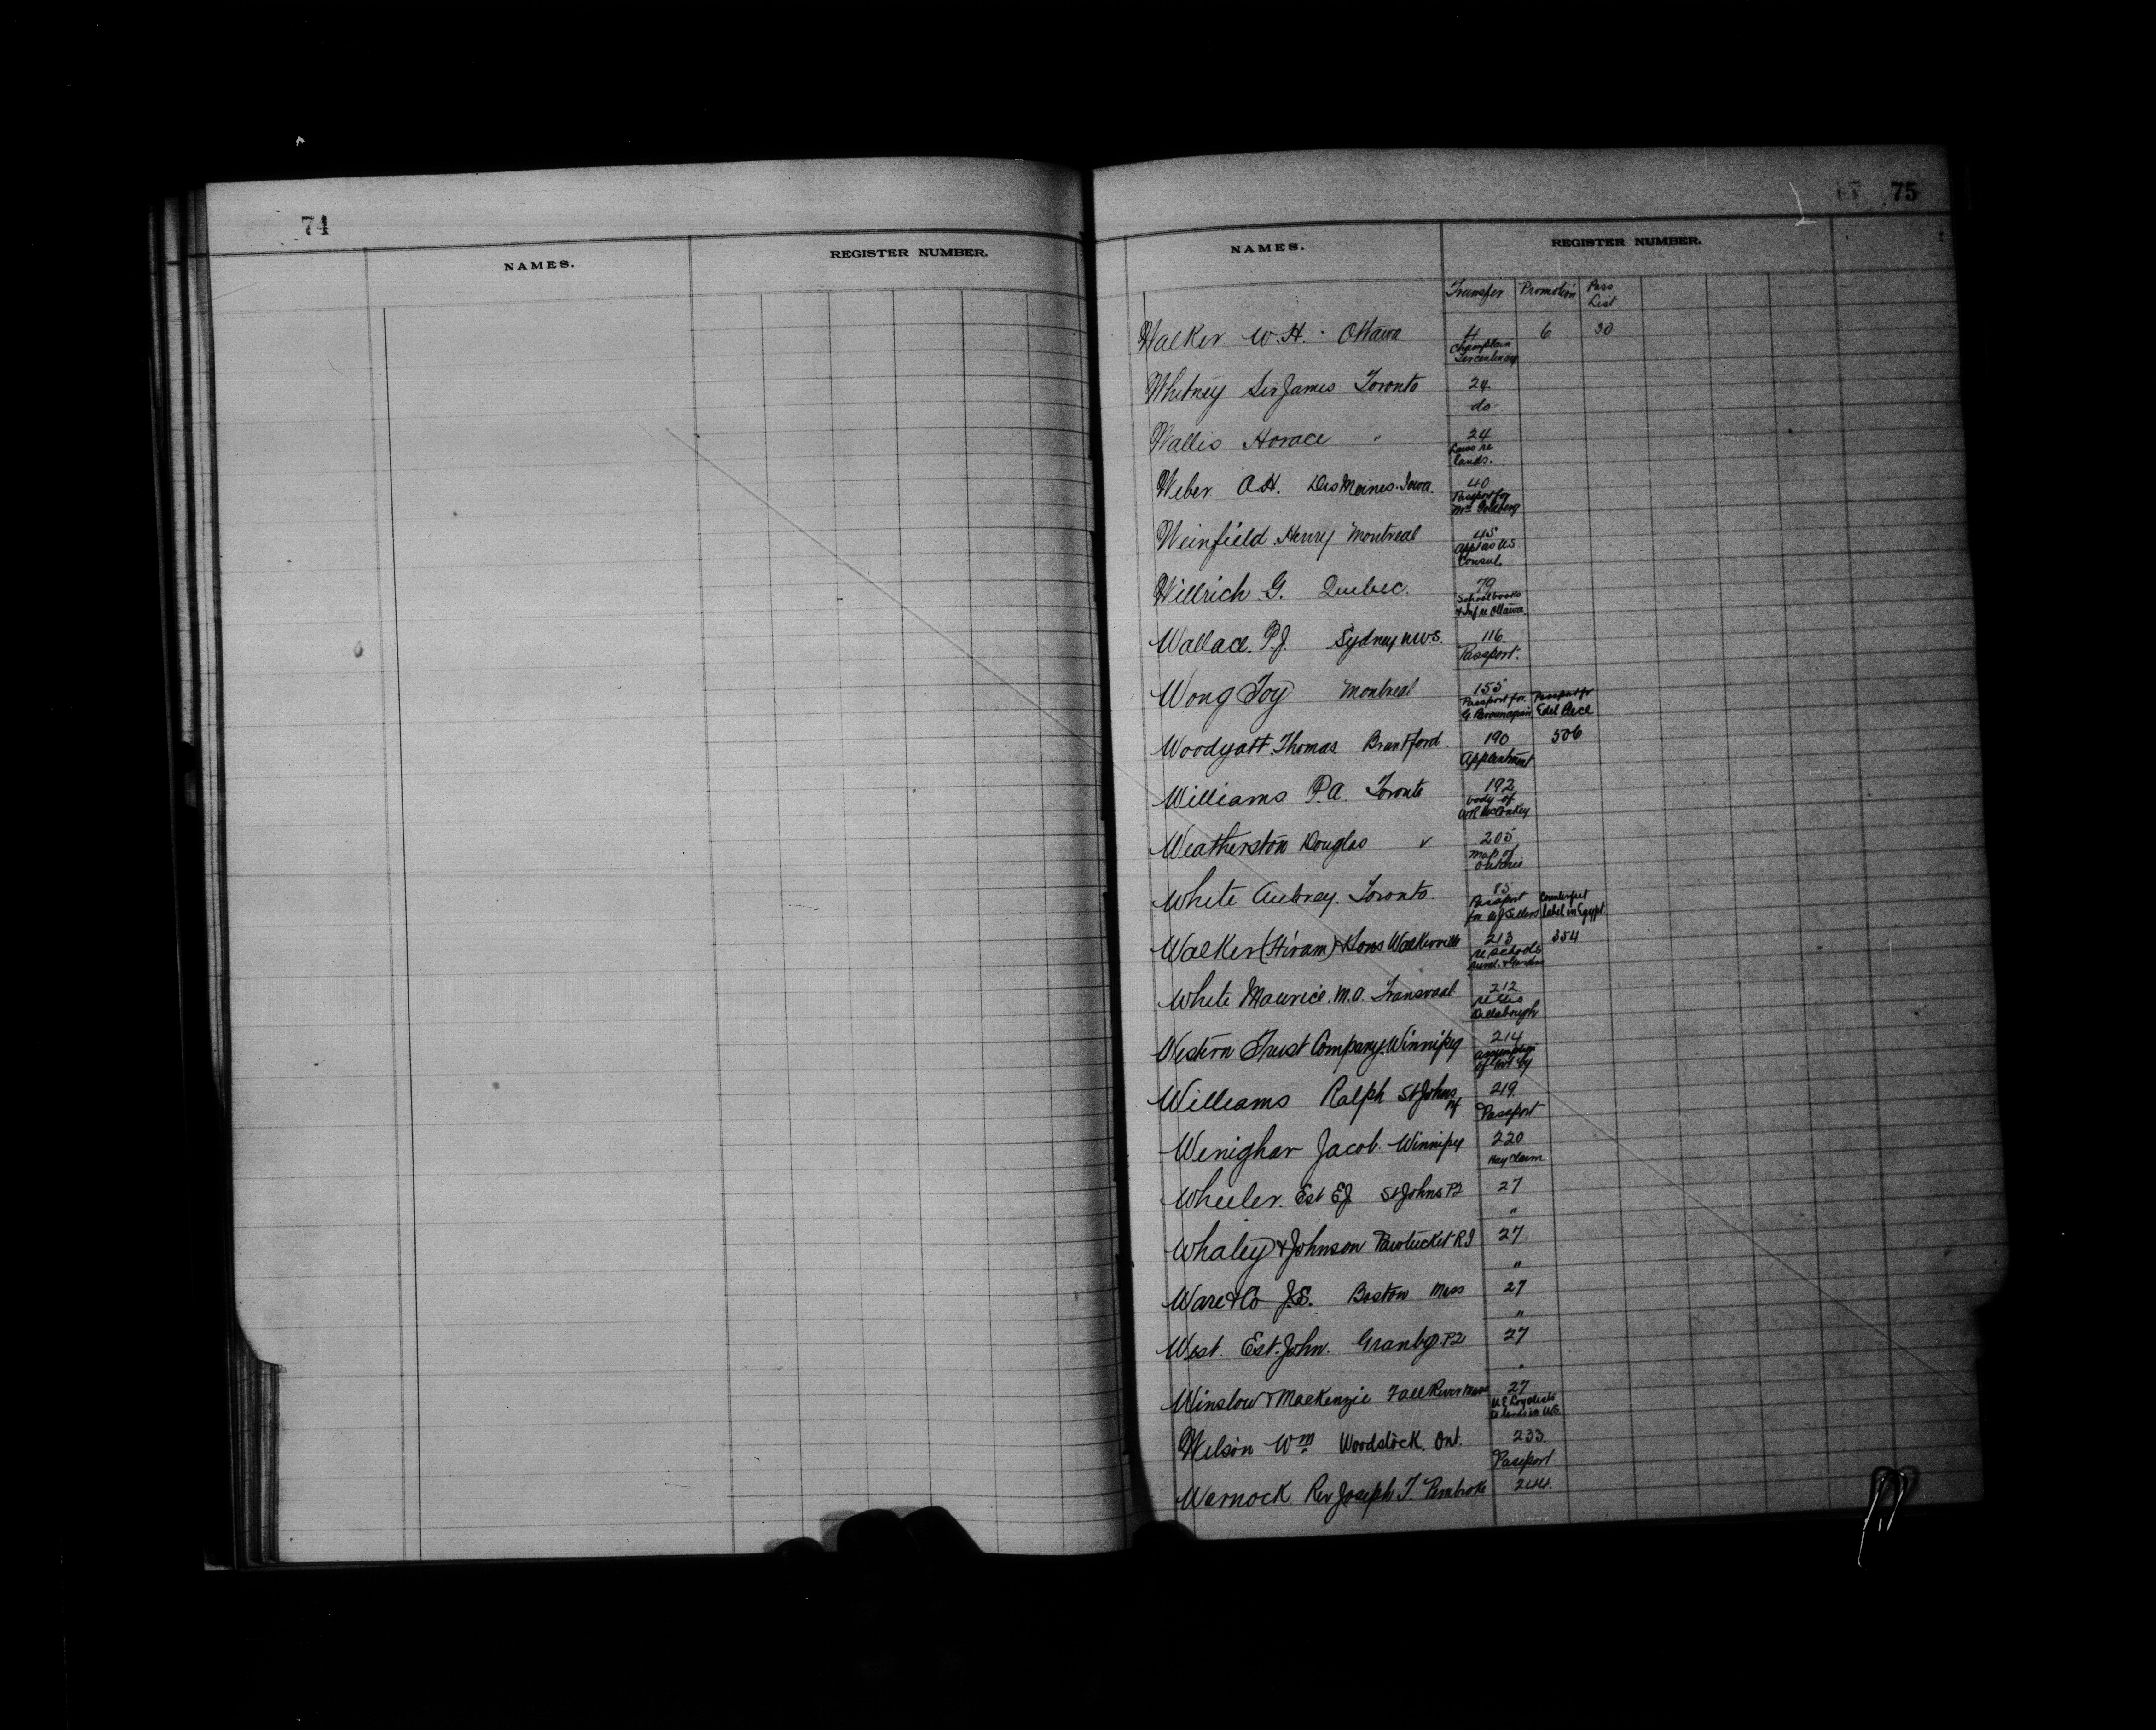 74
NAMES.
REGISTER NUMBER.
75
NAMES.
REGISTER NUMBER.
Transfer Promotion Pass List
Walker W.H. Ottawa 4 6 30
Champlain Tercentenary
Whitney Sir James Toronto 24
do
Wallis Horace " 24
Laws re lands.
Weber A.H. Des Moines. Iowa. 40
Passport for Mrs Goldberg
Weinfield Henry Montreal 45
App as US Consul
Willrich G. Quebec. 79
School books & Inf re Ottawa.
Wallace. P.J. Sydney NWS. 116
Passport.
Wong Joy Montreal 155
Passport for Passport for Edel
Woodyatt Thomas Brantford. 190 506
Appointment
Williams P.A. Toronto 192
body of
Weatherston Douglas 205
Map of
White Aubrey. Toronto. 85
Passport for A J Sellers Counterfeit label in Egypt
Walker (Hiram) & Sons Walkerville 213 354
re schools
White Maurice. M.O. Transvaal 212
re
Western Trust Company. Winnipeg 214
of Govt by
Williams Ralph St Johns Nf 219
Passport
Wenighar Jacob. Winnipeg 220
Hay Claim
Wheeler. Est E.J. St Johns PQ 27
"
Whaley & Johnson Pawtucket R I 27
"
Ware & Co J.S. Boston Mass 27
"
West. Est. John. Granby. PQ 27
"
Winslow & MacKenzie Fall River Mass 27
U E Loyalists lands in U.S.
Wilson Wm Woodstock. Ont. 233
Passport
Warnock. Rev Joseph T. Pembroke 244